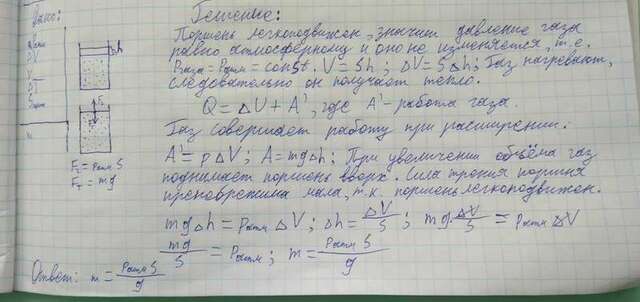 Дано:
Решение:
Поршень легкоподвижен, значит давление газа
равно атмосферному и оно не изменяется, т.е.
Pгаза = Pатм = const. V = Sh; ΔV = SΔh; Газ нагревают,
следовательно он получает тепло.
Q = ΔU + A', где A' - работа газа.
Газ совершает работу при расширении.
A' = pΔV; A = mgΔh; При увеличении объёма газ
поднимает поршень вверх. Сила трения поршня
пренебрежима мала, т.к. поршень легкоподвижен.
mgΔh = Pатм ΔV; Δh = ΔV/S; mg ΔV/S = Pатм ΔV
mg/S = Pатм; m = Pатм S/g
Δh
F = Pатм S
Fт = mg
m
Ответ: m = Pатм S/g